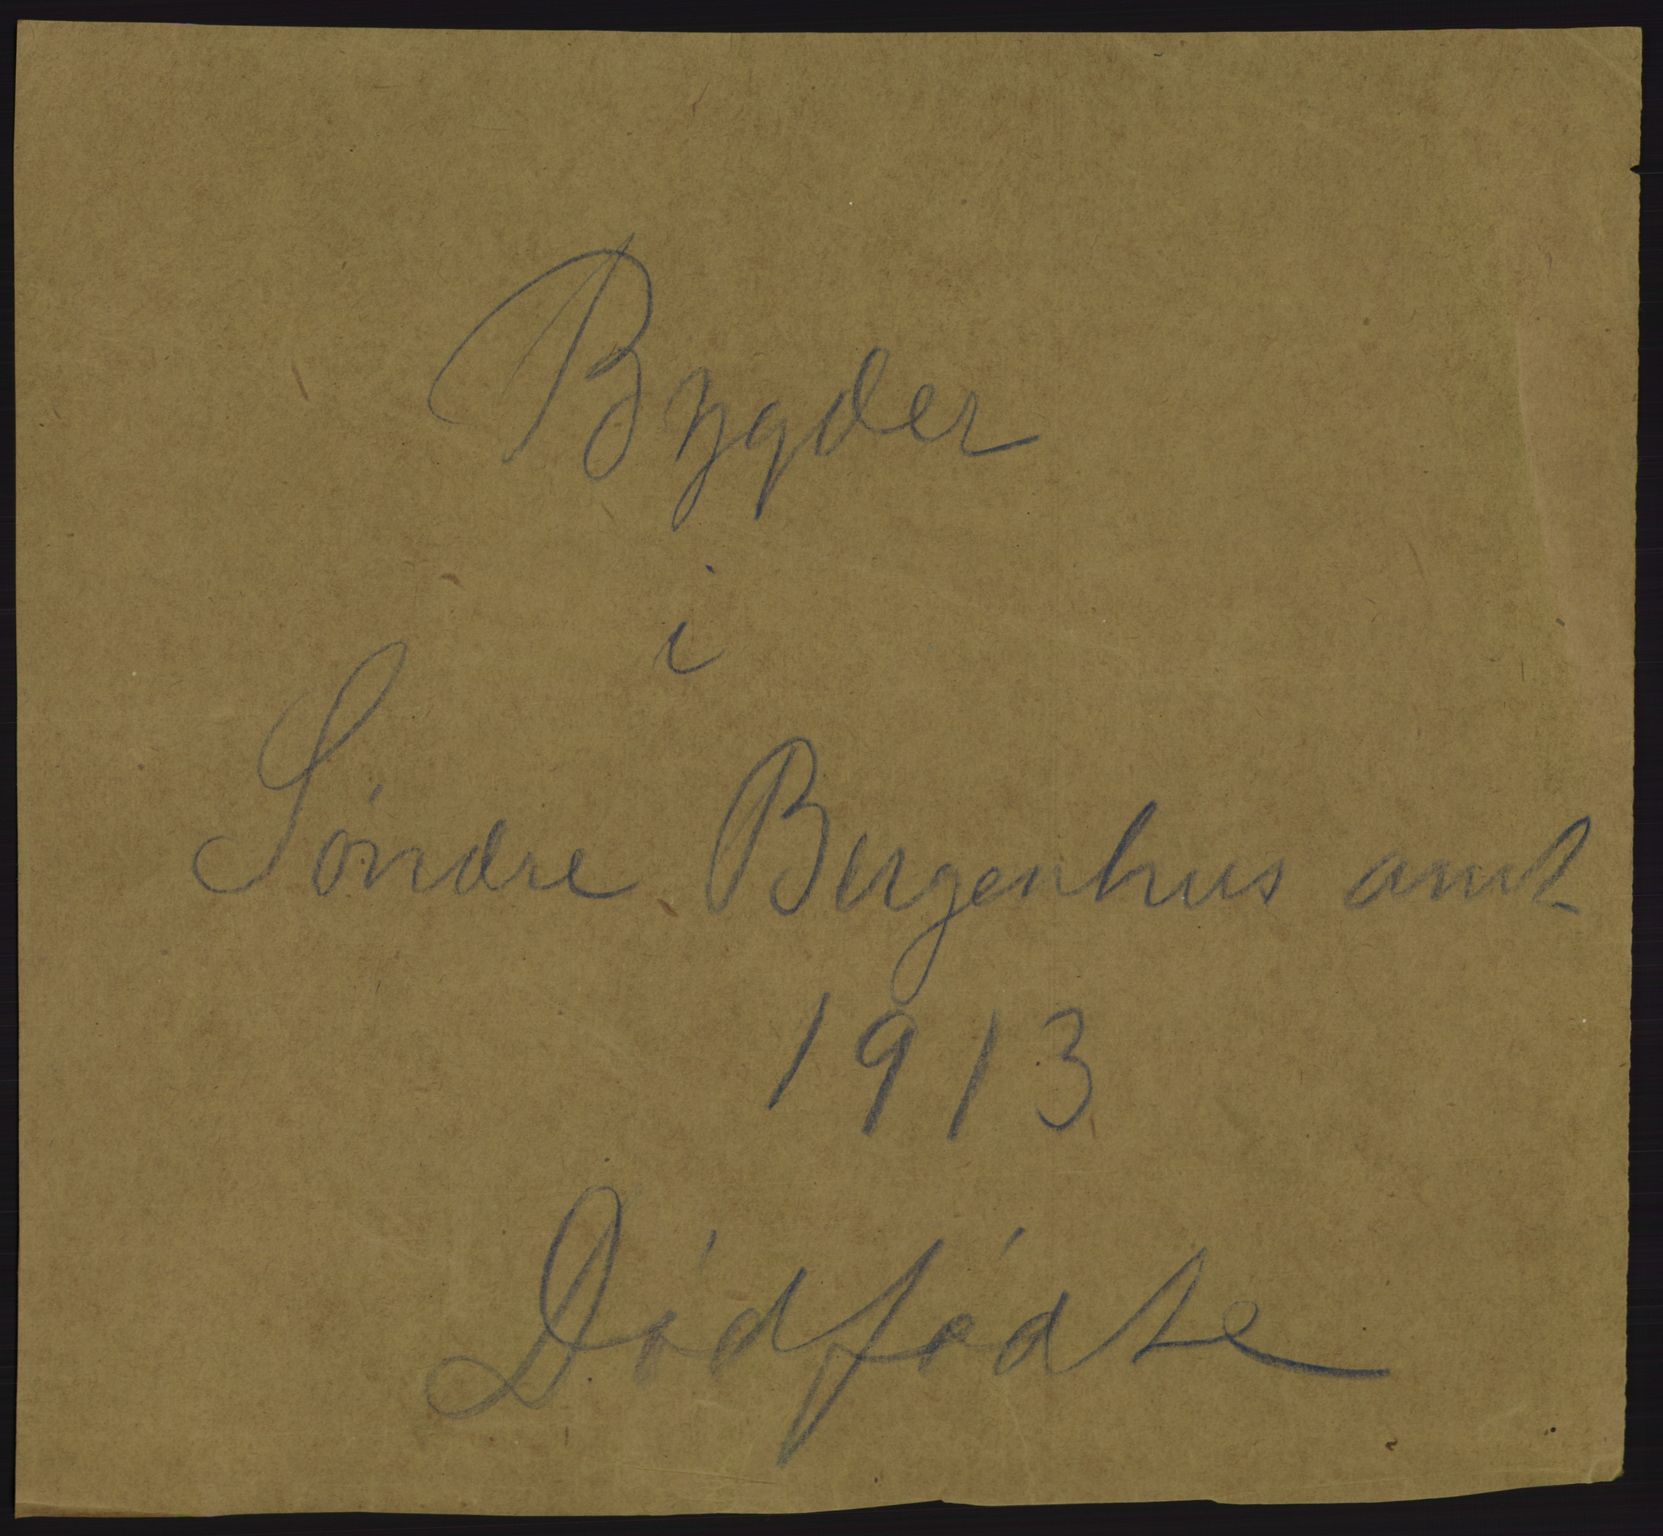 Bygder
i
Søndre Bergenhus amt.
1913
Dødfødte